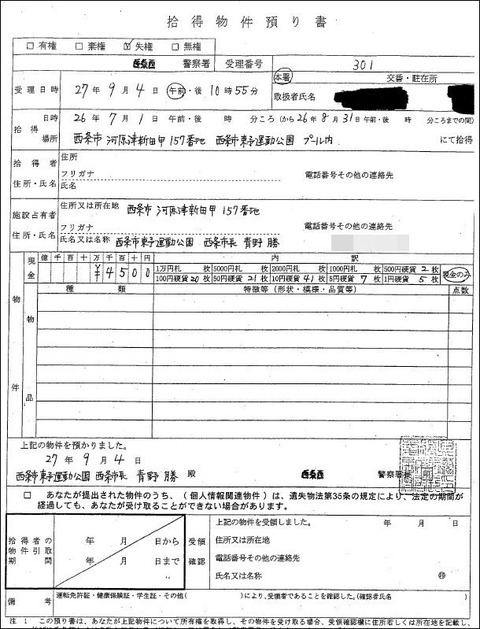 拾得物件預り書
□ 有権 □ 棄権 ☑ 失権 □ 無権
西条西 警察署 受理番号 301
受理日時 27年9月4日 午前・後 10時55分 本署 交番・駐在所
取扱者氏名
拾得 日時 26年7月1日 午前・後 時 分ころ(から26年8月31日午前・後 時 分ころまでの間)
場所 西条市河原津新田甲157番地 西条市東予運動公園 プール内 にて拾得
拾得者 住所
フリガナ 電話番号その他の連絡先
住所・氏名 氏名
施設占有者 住所又は所在地 西条市河原津新田甲157番地
フリガナ 電話番号その他の連絡先
住所・氏名 氏名又は名称 西条市東予運動公園 西条市長 青野 勝
物件 現金 億千百十万千百十円 内訳
¥4500
1万円札 枚 5000円札 枚 2000円札 枚 1000円札 枚 500円硬貨 2枚 現金のみ
100円硬貨 20枚 50円硬貨 21枚 10円硬貨 41枚 5円硬貨 7枚 1円硬貨 5枚
物品 種類 特徴等(形状・模様・品質等) 点数
上記の物件を預かりました。
27年9月4日
西条市東予運動公園 西条市長 青野 勝 殿 西条西 警察署長
□ あなたが提出された物件のうち、(個人情報関連物件)は、遺失物法第35条の規定により、法定の期間が
経過しても、あなたが受け取ることができない場合があります。
拾得者の物件引取期間 年 月 日から
年 月 日まで
受領確認 上記の物件を受領しました。 年 月 日
住所又は所在地
電話番号その他の連絡先
氏名又は名称 ㊞
備考 運転免許証・健康保険証・学生証・その他( )により、受領者であることを確認した。(確認者氏名 )
注 1 この預り書は、あなたが上記物件について所有権を取得し、その物件を受け取る場合、受領確認欄に住所若しくは所在地を記載し、